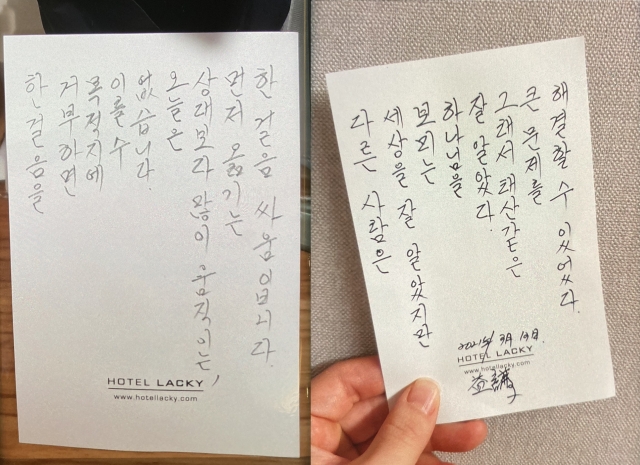 한걸음을
거부하면
목적지에
이를 수
없습니다.
오늘은
상대보다 많이 움직이는,
먼저 옮기는
한 걸음 싸움입니다.
HOTEL LACKY
www.hotellacky.com
다른 사람은
세상을 잘 알았지만
하나님을
잘 알았다.
그래서 태산같은
큰 문제를
해결할 수 있었다.
2021年 3月 19日.
HOTEL LACKY
www.hotellacky.com